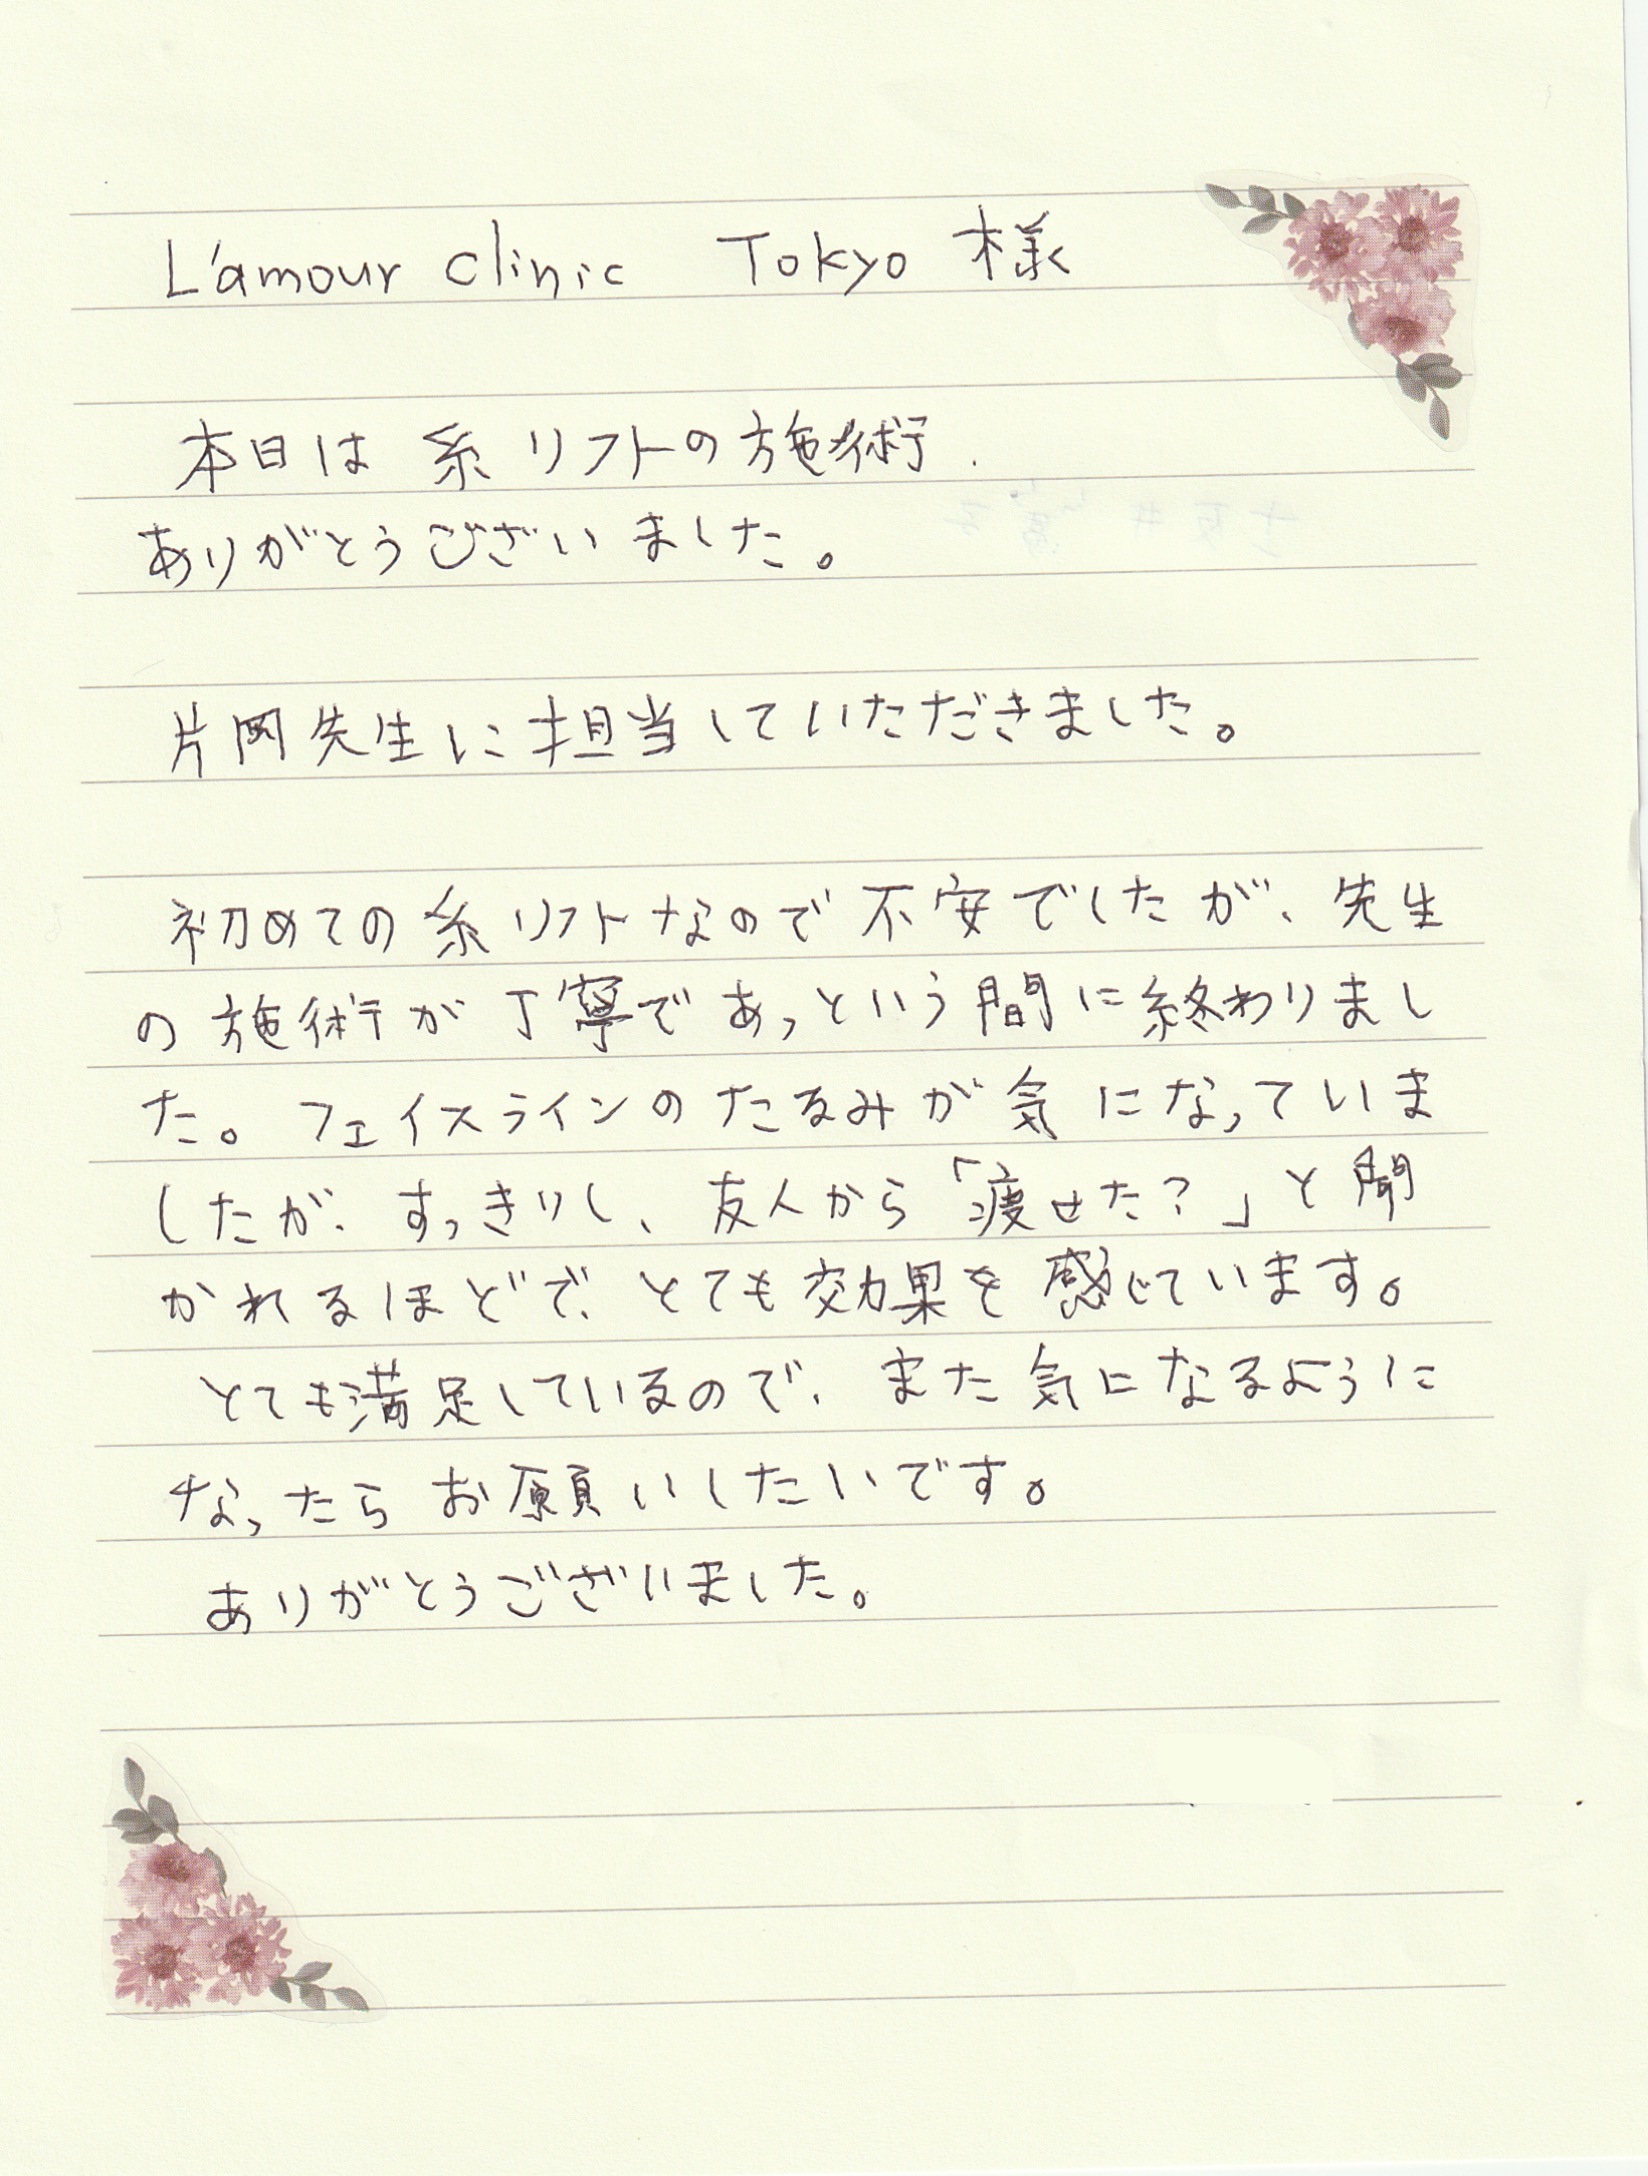 L'amour clinic Tokyo 様
本日は 糸リフトの施術
ありがとうございました。
片岡先生に担当していただきました。
初めての糸リフトなので不安でしたが、先生
の施術が丁寧であっという間に終わりまし
た。フェイスラインのたるみが気になっていま
したが、すっきりし、友人から「痩せた？」と聞
かれるほどで、とても効果を感じています。
とても満足しているので、また気になるように
なったらお願いしたいです。
ありがとうございました。